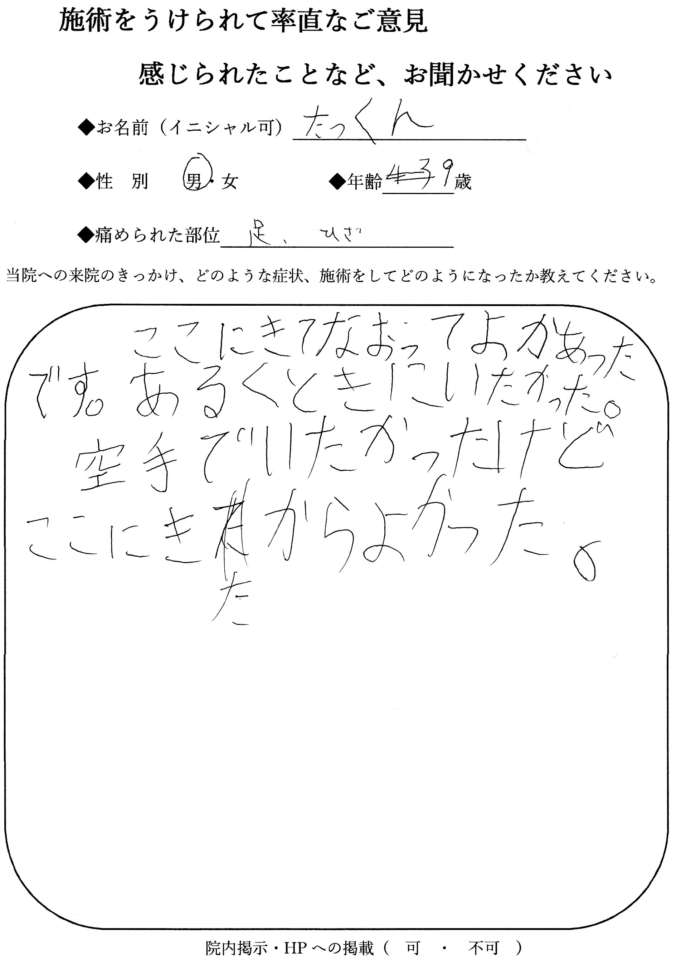 施術をうけられて率直なご意見
感じられたことなど、お聞かせください
◆お名前（イニシャル可） たっくん
◆性 別 男・女 ◆年齢 9歳
◆痛められた部位 足、ひざ
当院への来院のきっかけ、どのような症状、施術をしてどのようになったか教えてください。
ここにきてなおってよかあった
です。あるくときにいたかった。
空手でいたかったけど
ここにきたからよかった。
院内掲示・HPへの掲載（ 可 ・ 不可 ）